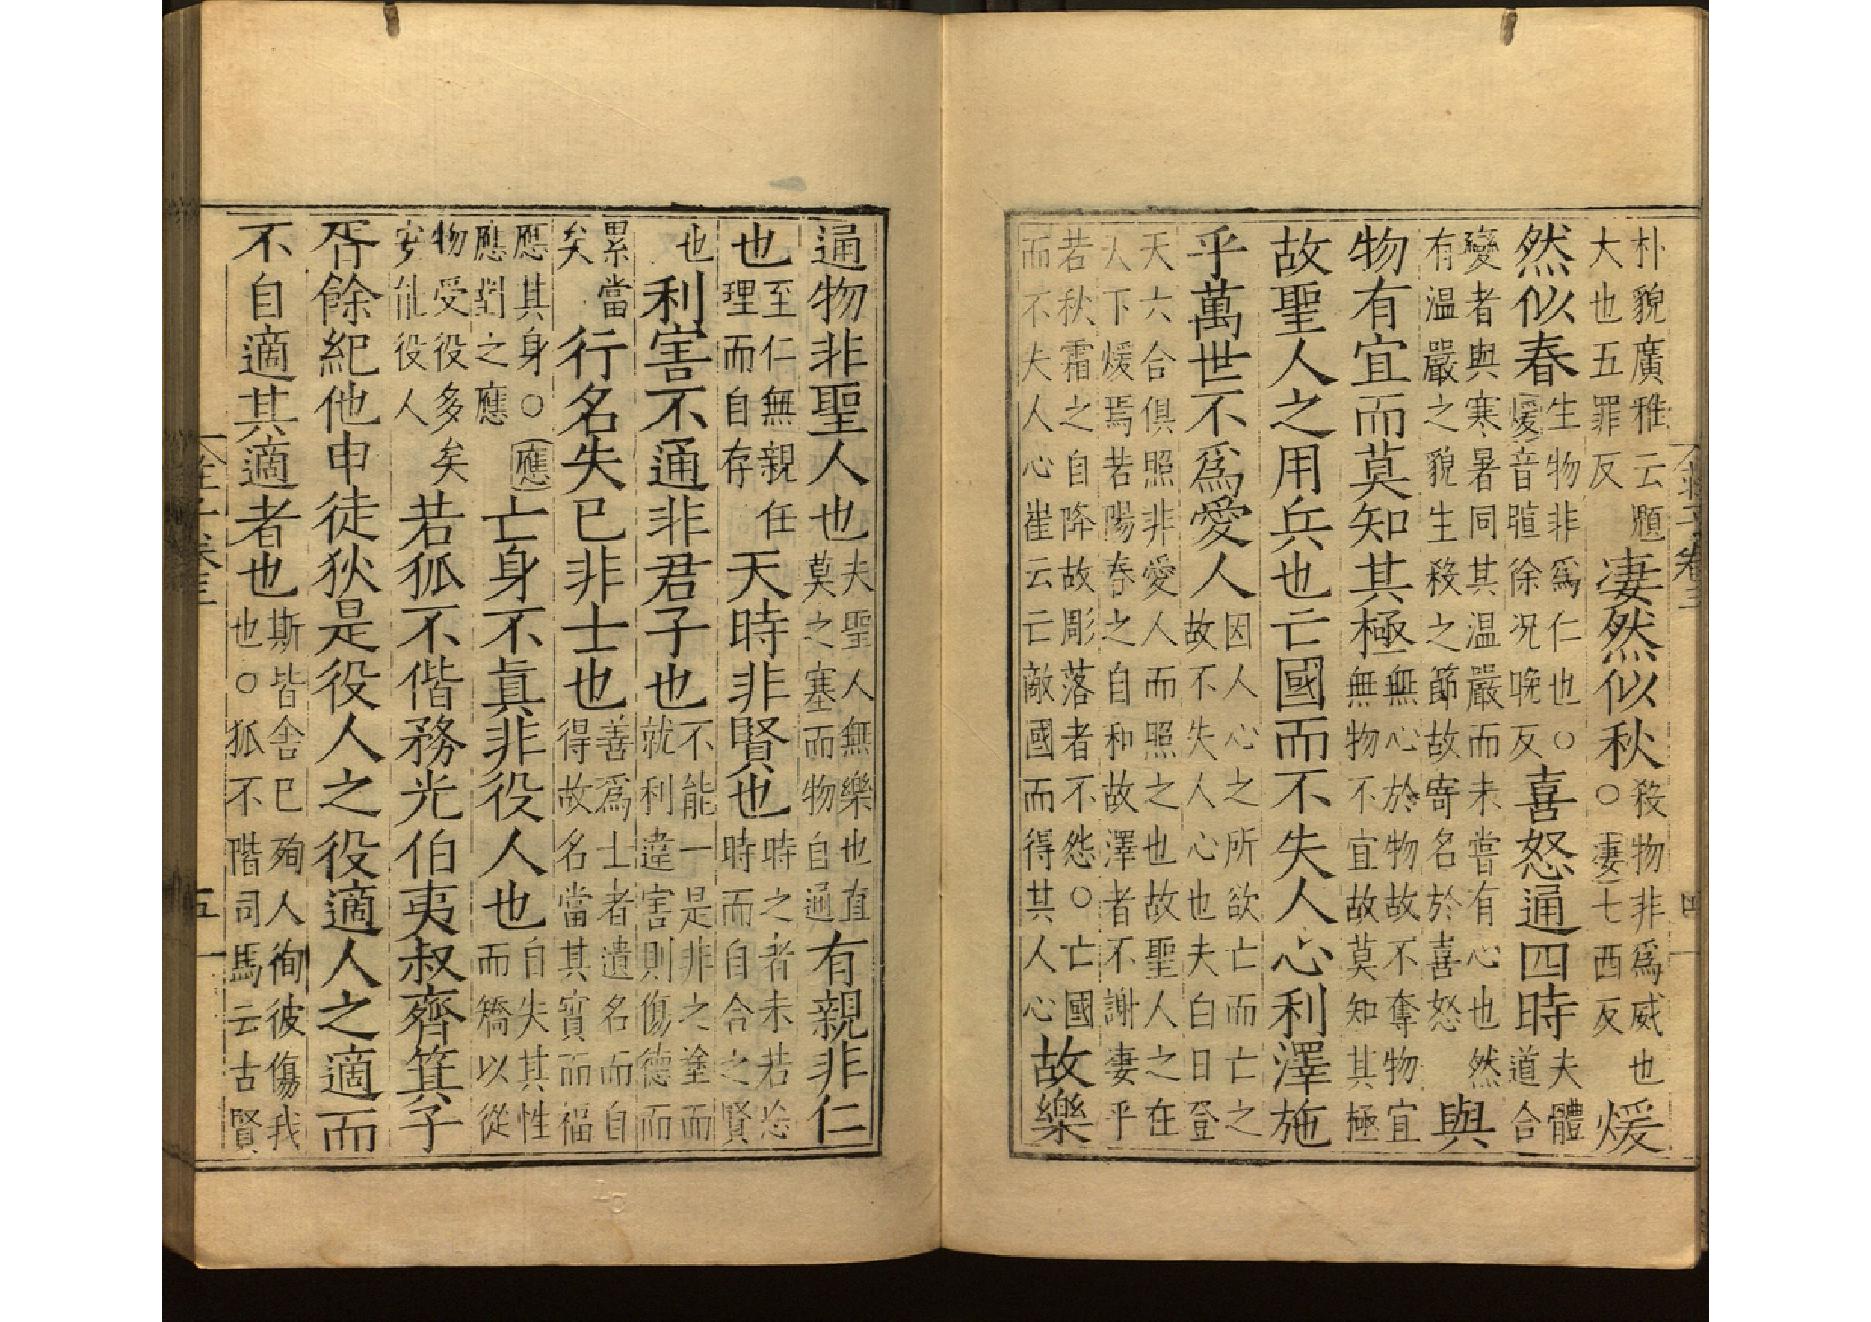 朴貌廣雅云頯大也五罪反淒然似秋殺物非爲威也○淒七西反煖
然似春生物非爲仁也○煖音暄徐况晚反喜怒通四時夫體道合
變者與寒暑同其溫嚴而未嘗有心也然有溫嚴之貌生殺之節故寄名於喜怒與
物有宜而莫知其極無心於物故不奪物宜無物不宜故莫知其極
故聖人之用兵也亡國而不失人心利澤施
乎萬世不爲愛人因人心之所欲亡而亡之故不失人心也夫白日登
天六合俱照非愛人而照之也故聖人之在天下煖焉若陽春之自和故澤者不謝淒乎
若秋霜之自降故彫落者不怨○亡國而不失人心崔云亡敵國而得其人心故樂
通物非聖人也夫聖人無樂也直莫之塞而物自通有親非仁
也至仁無親任理而自存天時非賢也時之者未若忘時而自合之賢
也利害不通非君子也不能一是非之塗而就利違害則傷德而
累當矣行名失已非士也善爲士者遺名而自得故名當其實而福
應其身○應應對之應亡身不眞非役人也自失其性而矯以從
物受役多矣安能役人若狐不偕務光伯夷叔齊箕子
胥餘紀他申徒狄是役人之役適人之適而
不自適其適者也斯皆舍已殉人徇彼傷我也○狐不偕司馬云古賢